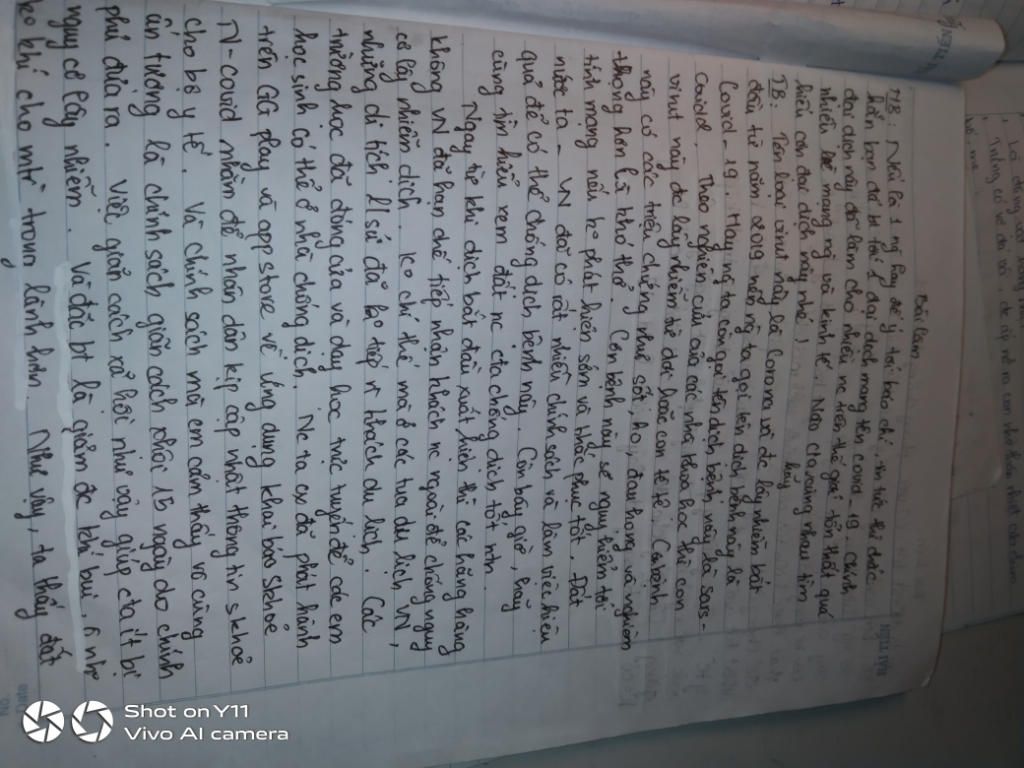 Bài làm
MB: Nếu là 1 ng hay để ý tới báo chí, tin tức thì chắc
hẳn bạn đã bt tới 1 đại dịch mang tên covid - 19. Chính
đại dịch này đã làm cho nhiều nc trên thế giới tổn thất quá
nhiều về mạng ng và kinh tế. Nào cta cùng nhau tìm
hiểu cơn đại dịch này nhé!
TB. Tên loại virut này là Corona và đc lây nhiễm bắt
đầu từ năm 2019 nên ng ta gọi tên dịch bệnh này là
Covid - 19. Hay ng ta còn gọi tên dịch bệnh này là Sars-
Covid. Theo nghiên cứu của các nhà khoa học thì con
virut này đc lây nhiễm từ dơi hoặc con tê tê. Cơn bệnh
này có các triệu chứng như sốt, ho, đau họng và nghiêm
trọng hơn là khó thở. Cơn bệnh này sẽ nguy hiểm tới
tính mạng nếu ko phát hiện sớm và khắc phục tốt. Đất
nước ta - VN đã có rất nhiều chính sách và làm việc hiệu
quả để có thể chống dịch bệnh này. Còn bây giờ, hãy
cùng tìm hiểu xem đất nc cta chống dịch tốt ntn.
Ngay từ khi dịch bắt đầu xuất hiện thì các hãng hàng
không VN đã hạn chế tiếp nhận khách nc ngoài để chống nguy
cơ lây nhiễm dịch. Ko chỉ thế mà ở các tua du lịch VN,
những di tích l/sử đã ko tiếp n khách du lịch. Các
trường học đã đóng cửa và dạy học trực tuyến để các em
học sinh có thể ở nhà chống dịch. Nc ta cx đã phát hành
trên GG play và app store về ứng dụng khai báo skhỏe
N-covid nhằm để nhân dân kịp cập nhật thông tin s khỏe
cho bộ y tế. Và chính sách mà em cảm thấy vô cùng
ấn tượng là chính sách giãn cách xã hội 15 ngày do chính
phủ đưa ra. Việc giãn cách xã hội như vậy giúp cta ít bị
nguy cơ lây nhiễm. Và đặc bt là giảm đc khí bụi, ô nhiễ
ko khí cho mtr trong lành hơn. Như vậy, ta thấy đất
Shot on Y11
Vivo AI camera